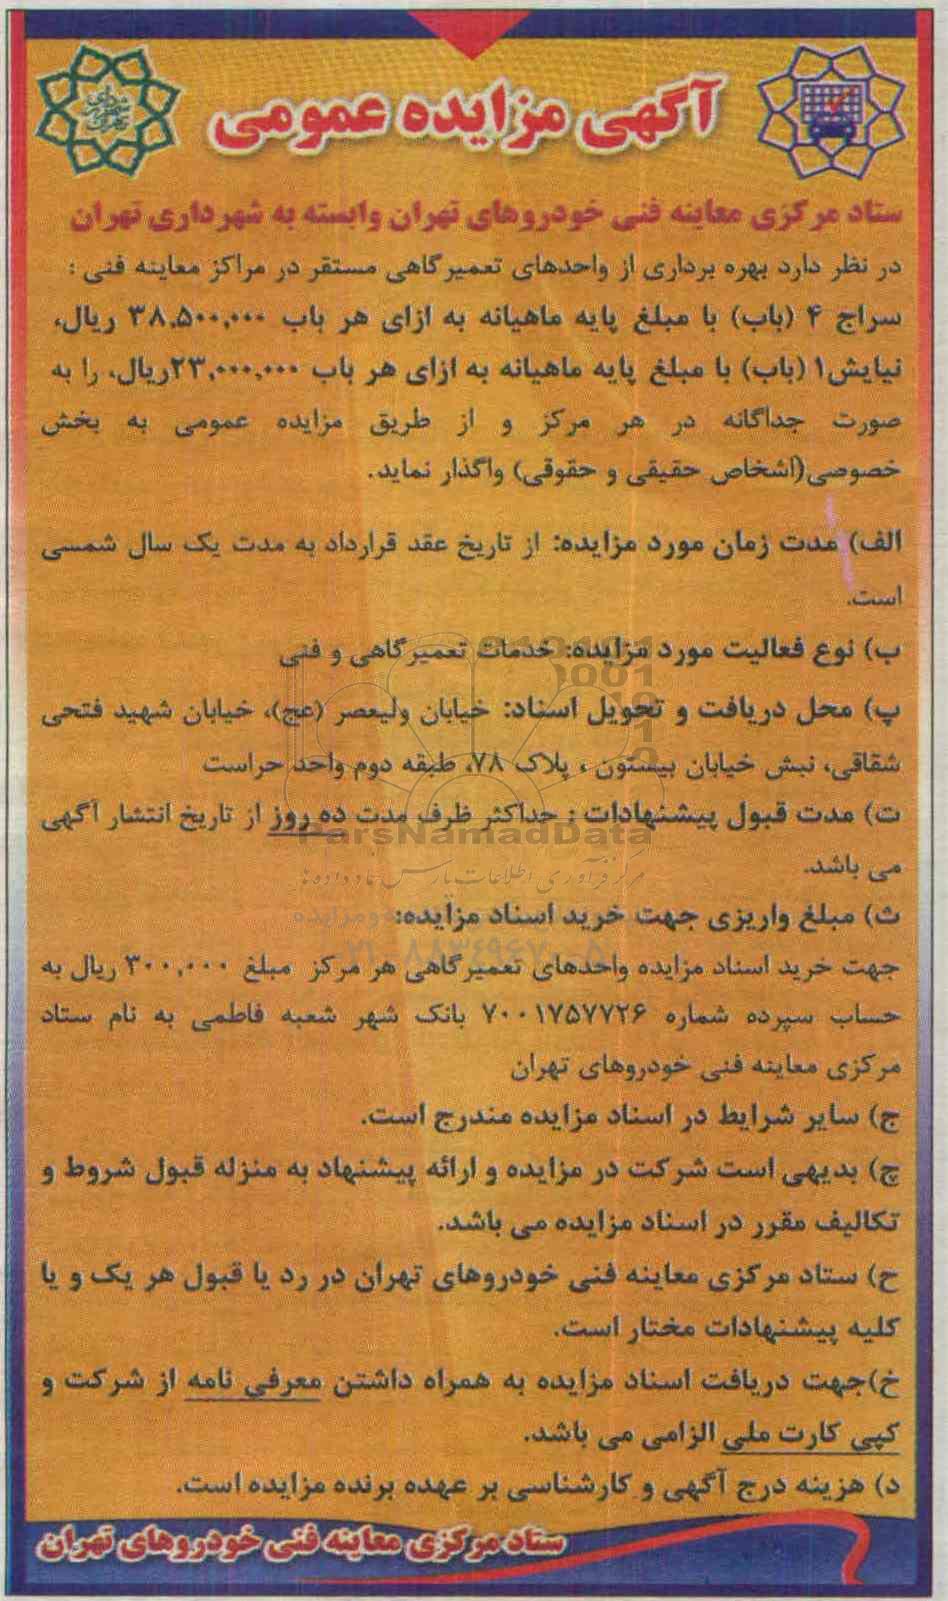 آگهی مزایده عمومی
شهرداری تهران
ستاد مرکزی معاینه فنی خودروهای تهران وابسته به شهرداری تهران
در نظر دارد بهره برداری از واحدهای تعمیرگاهی مستقر در مراکز معاینه فنی :
سراج ۴ (باب) با مبلغ پایه ماهیانه به ازای هر باب ۳۸,۵۰۰,۰۰۰ ریال،
نیایش۱ (باب) با مبلغ پایه ماهیانه به ازای هر باب ۲۳,۰۰۰,۰۰۰ریال، را به
صورت جداگانه در هر مرکز و از طریق مزایده عمومی به بخش
خصوصی(اشخاص حقیقی و حقوقی) واگذار نماید.
الف) مدت زمان مورد مزایده: از تاریخ عقد قرارداد به مدت یک سال شمسی
است.
ب) نوع فعالیت مورد مزایده: خدمات تعمیرگاهی و فنی
پ) محل دریافت و تحویل اسناد: خیابان ولیعصر (عج)، خیابان شهید فتحی
شقاقی، نبش خیابان بیستون ، پلاک ۷۸، طبقه دوم واحد حراست
ت) مدت قبول پیشنهادات : حداکثر ظرف مدت ده روز از تاریخ انتشار آگهی
ParsNamadData
می باشد.
مرکز فرآوری اطلاعات پارس نماد داده ها
ث) مبلغ واریزی جهت خرید اسناد مزایده:
جهت خرید اسناد مزایده واحدهای تعمیرگاهی هر مرکز مبلغ ۳۰۰,۰۰۰ ریال به
حساب سپرده شماره ۷۰۰۱۷۵۷۷۲۶ بانک شهر شعبه فاطمی به نام ستاد
مرکزی معاینه فنی خودروهای تهران
ج) سایر شرایط در اسناد مزایده مندرج است.
چ) بدیهی است شرکت در مزایده و ارائه پیشنهاد به منزله قبول شروط و
تکالیف مقرر در اسناد مزایده می باشد.
ح) ستاد مرکزی معاینه فنی خودروهای تهران در رد یا قبول هر یک و یا
کلیه پیشنهادات مختار است.
خ)جهت دریافت اسناد مزایده به همراه داشتن معرفی نامه از شرکت و
کپی کارت ملی الزامی می باشد.
د) هزینه درج آگهی و کارشناسی بر عهده برنده مزایده است.
ستاد مرکزی معاینه فنی خودروهای تهران